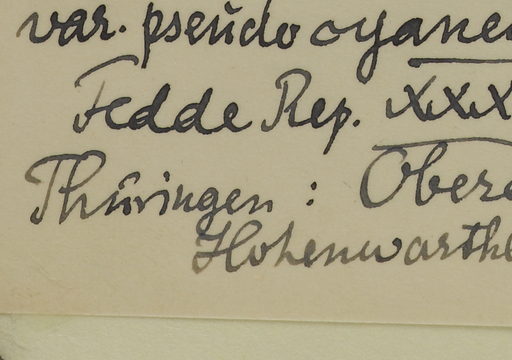 var. pseudo cyane
Fedde Rep. XXX
Thüringen : Obere
Hohenwarthe